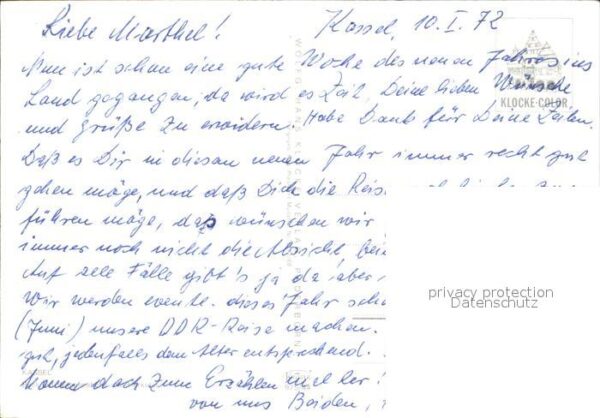 Liebe Marthel! Kassel, 10.I.72
Nun ist schon eine gute Woche des neuen Jahres ins
Land gegangen, da wird es Zeit, Deine lieben Wünsche
und Grüße zu erwidern. Habe Dank für Deine Zeilen.
Daß es Dir in diesem neuen Jahr immer recht gut
gehen möge, und daß Dich die Reise
führen möge, das wünschen wir
immer noch nicht die Absicht, bei
Auf alle Fälle gibt's ja da aber
Wir werden evente. dieses Jahr scho
(Juni) unsere DDR-Reise machen.
gut, jedenfalls dem Alter entsprechend.
Komm doch zum Erzählen mal her!
von uns Beiden,
KLOCKE-COLOR
privacy protection
Datenschutz
KASSEL